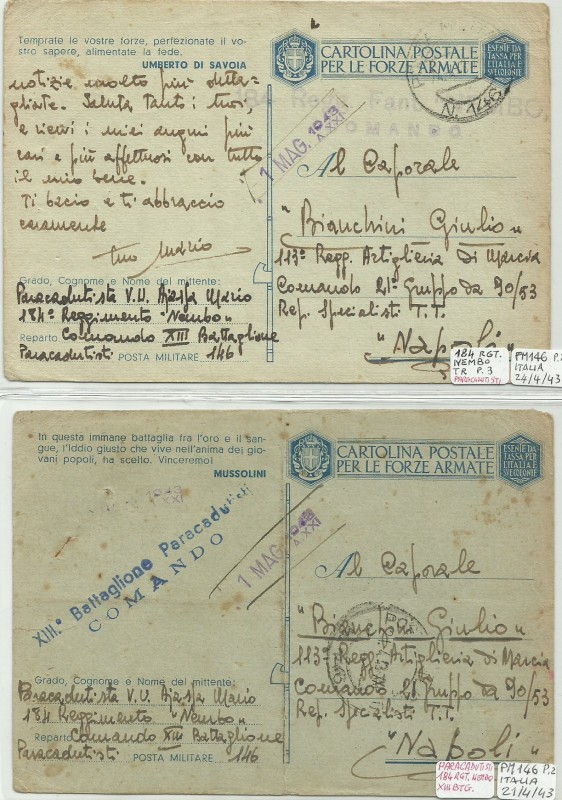 Temprate le vostre forze, perfezionate il vo-
stro sapere, alimentate la fede.
UMBERTO DI SAVOIA
notizie molto più detta-
gliate. Saluta tanti i tuoi,
e ricevi i miei auguri più
cari e più affettuosi con tutto
il mio bene.
Ti bacio e ti abbraccio
caramente
tuo Mario
Grado, Cognome e Nome del mittente:
Paracadutista V.U. Mario
184º Reggimento "Nembo"
Reparto Comando XIII Battaglione
Paracadutisti POSTA MILITARE 146
CARTOLINA POSTALE
PER LE FORZE ARMATE
ESENTE DA
TASSA PER
L'ITALIA E
SVE COLONIE
N. 146
184 Regg. Fant. NEMBO
COMANDO
1 MAG. 1943
A. XXI
Al Caporale
"Bianchini Giulio"
113º Regg. Artiglieria di Marcia
Comando 21º Gruppo da 90/53
Rep. Specialisti T.T.
"Napoli"
184 RGT.
NEMBO
TR P.3
PARACADUTISTI
PM146 P.2
ITALIA
24/4/43
In questa immane battaglia fra l'oro e il san-
gue, l'Iddio giusto che vive nell'anima dei gio-
vani popoli, ha scelto. Vinceremo!
MUSSOLINI
XIII.º Battaglione Paracadutisti
COMANDO
Grado, Cognome e Nome del mittente:
Paracadutista V.U. Mario
184 Reggimento "Nembo"
Reparto Comando XIII Battaglione
Paracadutisti POSTA MILITARE 146
CARTOLINA POSTALE
PER LE FORZE ARMATE
ESENTE DA
TASSA PER
L'ITALIA E
SVE COLONIE
1 MAG. 1943
A. XXI
Al Caporale
"Bianchini Giulio"
113º Regg. Artiglieria di Marcia
Comando 21 Gruppo da 90/53
Rep. Specialisti T.T.
"Napoli"
PARACADUTISTI
184 RGT. NEMBO
XIII BTG.
PM146 P.2
ITALIA
21/4/43